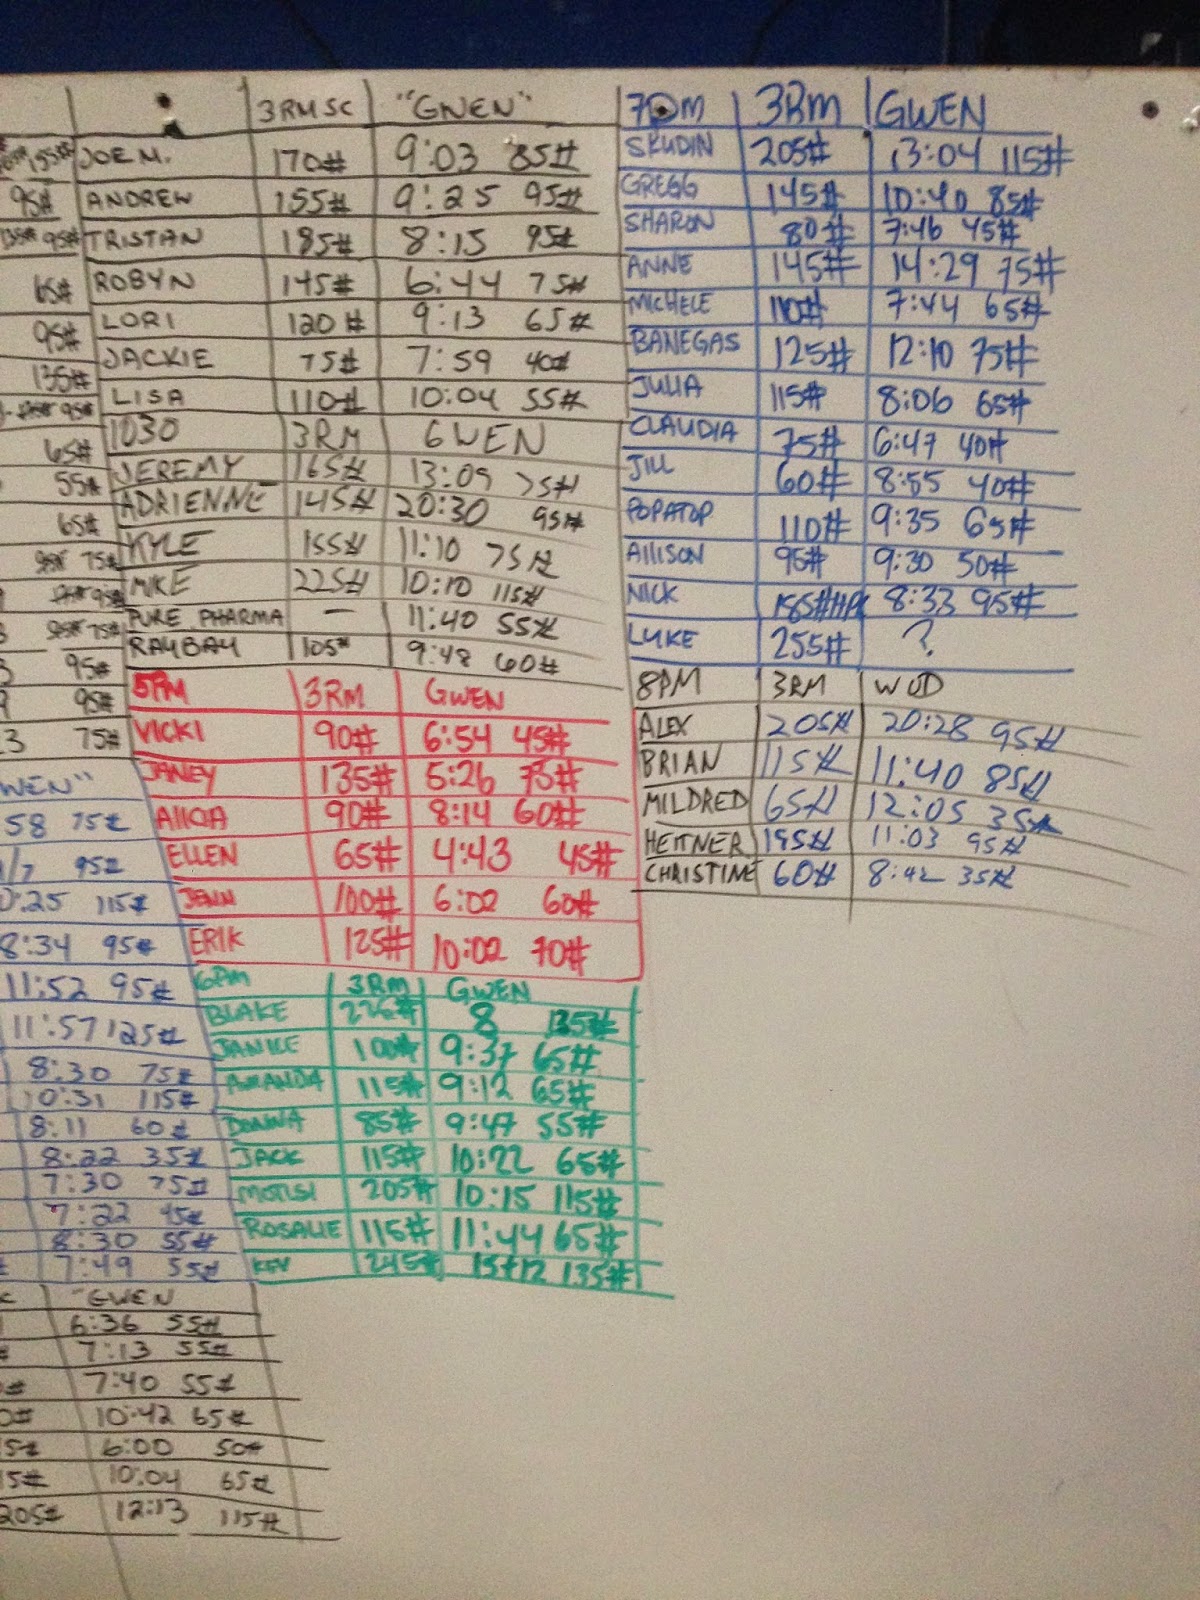 3RM SC "GWEN"
JOE M. 170# 9:03 85#
ANDREW 155# 9:25 95#
TRISTAN 185# 8:15 95#
ROBYN 145# 6:44 75#
LORI 120# 9:13 65#
JACKIE 75# 7:59 40#
LISA 110# 10:04 55#
1030 3RM GWEN
JEREMY 165# 13:09 75#
ADRIENNE 145# 20:30 95#
KYLE 155# 11:10 75#
MIKE 225# 10:10 115#
PURE PHARMA — 11:40 55#
RAYBAY 105# 9:48 60#
5PM 3RM GWEN
VICKI 90# 6:54 45#
JANEY 135# 5:26 75#
AllCIA 90# 8:14 60#
ELLEN 65# 4:43 45#
JENN 100# 6:02 60#
ERIK 125# 10:02 70#
6PM 3RM GWEN
BLAKE 8 135#
JANICE 100# 9:37 65#
AMANDA 115# 9:12 65#
DONNA 85# 9:47 55#
JACK 115# 10:22 65#
205# 10:15 115#
ROSALIE 115# 11:44 65#
KEV 245# 135#
7PM 3RM GWEN
SKUDIN 205# 13:04 115#
GREGG 145# 10:40 85#
SHARON 80# 7:46 45#
ANNE 145# 14:29 75#
MICHELE 110# 7:44 65#
BANEGAS 125# 12:10 75#
JULIA 115# 8:06 65#
CLAUDIA 75# 6:47 40#
JILL 60# 8:55 40#
POPATOP 110# 9:35 65#
AllISON 95# 9:30 50#
NICK 8:33 95#
LUKE 255# ?
8PM 3RM WOD
ALEX 205# 20:28 95#
BRIAN 115# 11:40 85#
MILDRED 65# 12:05 35#
HEITNER 195# 11:03 95#
CHRISTINE 60# 8:42 35#
95#
65#
95#
135#
95#
65#
55#
65#
75#
95#
75#
95#
95#
75#
WEN"
58 75#
95#
:25 115#
8:34 95#
11:52 95#
11:57 125#
8:30 75#
10:31 115#
8:11 60#
8:22 35#
7:30 75#
7:22 45#
8:30 55#
7:49 55#
"GWEN
6:36 55#
7:13 55#
7:40 55#
10:42 65#
6:00 50#
10:04 65#
205# 12:13 115#